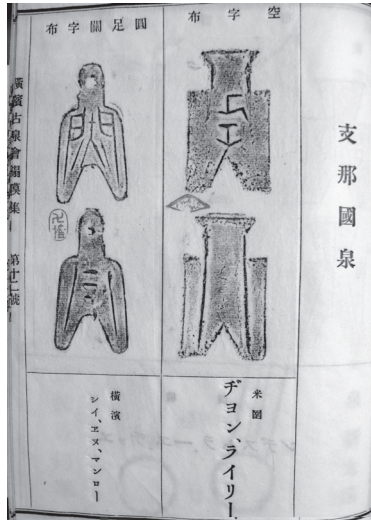 支那國泉
空字布
米國
ヂヨン、ライリー
圓足關字布
橫濱
シイ、ヱヌ、マンロー
橫濱古泉會搨摸集 第十一號